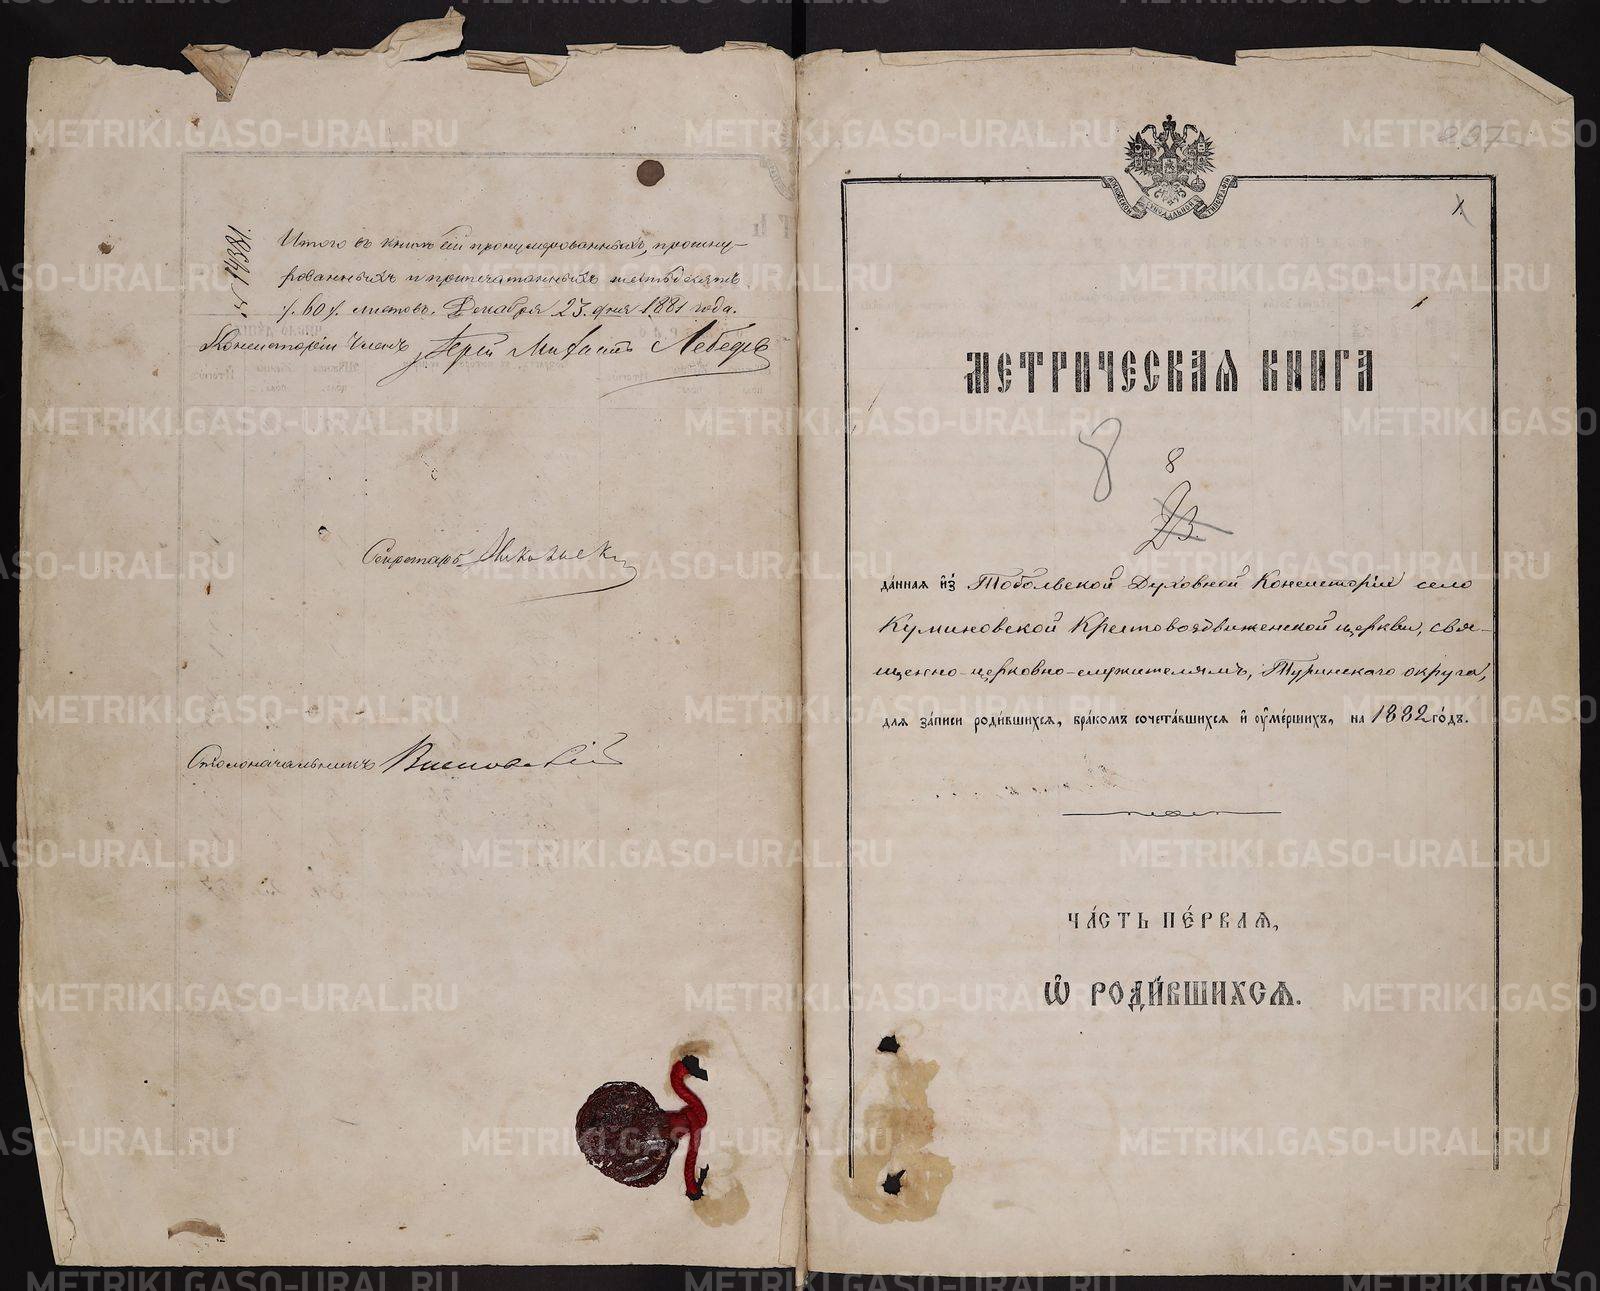 № 14381.
Итого въ книгѣ сей пронумерованныхъ, прошну-
рованныхъ и припечатанныхъ шестьдесятъ
/. 60 /. листовъ. Декабря 23. дня 1881 года.
Консисторіи Членъ, Іерей Михаилъ Лебедев
Секретарь
Столоначальникъ
237
СѴНОДАЛЬНОЙ ТИПОГРАФІИ
1.
МЕТРИЧЕСКАѦ КНИГА
8
8
23.
да́нная и҆з̾ Тобольской Духовной Консисторіи село
Куминовской Крестовоздвиженской церкви, свя-
щенно-церковно-служителямъ, Туринскаго округа,
для за́писи роди́вшихсѧ, бра́комъ сочета́вшихсѧ и҆ ᲂу҆ме́ршихъ, на 1882 го́дъ.
ЧА́СТЬ ПЕ́РВАѦ,
Ѽ РОДИ́ВШИХСѦ.
METRIKI.GASO-URAL.RU